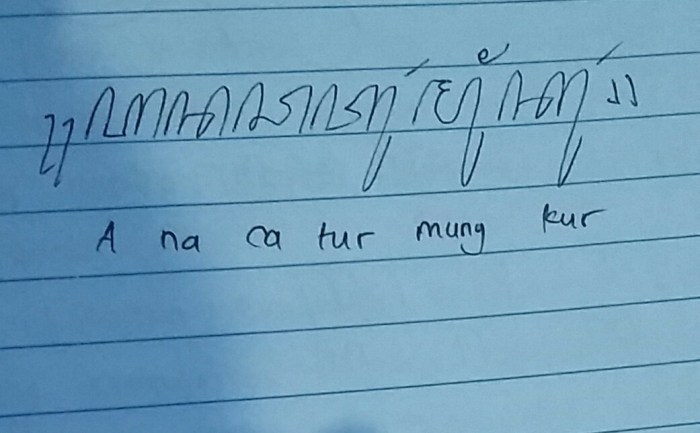 ꧋ꦲꦤꦕꦠꦸꦂꦩꦸꦁꦏꦸꦂ꧉
A na ca tur mung kur